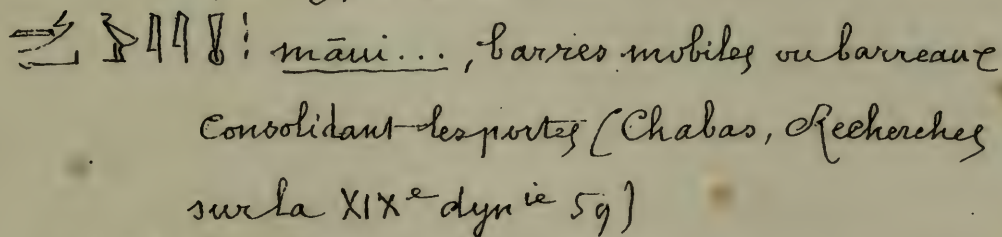 māui..., barres mobiles ou barreaux
consolidant les portes (Chabas, Recherches
sur la XIXe dynie 59)